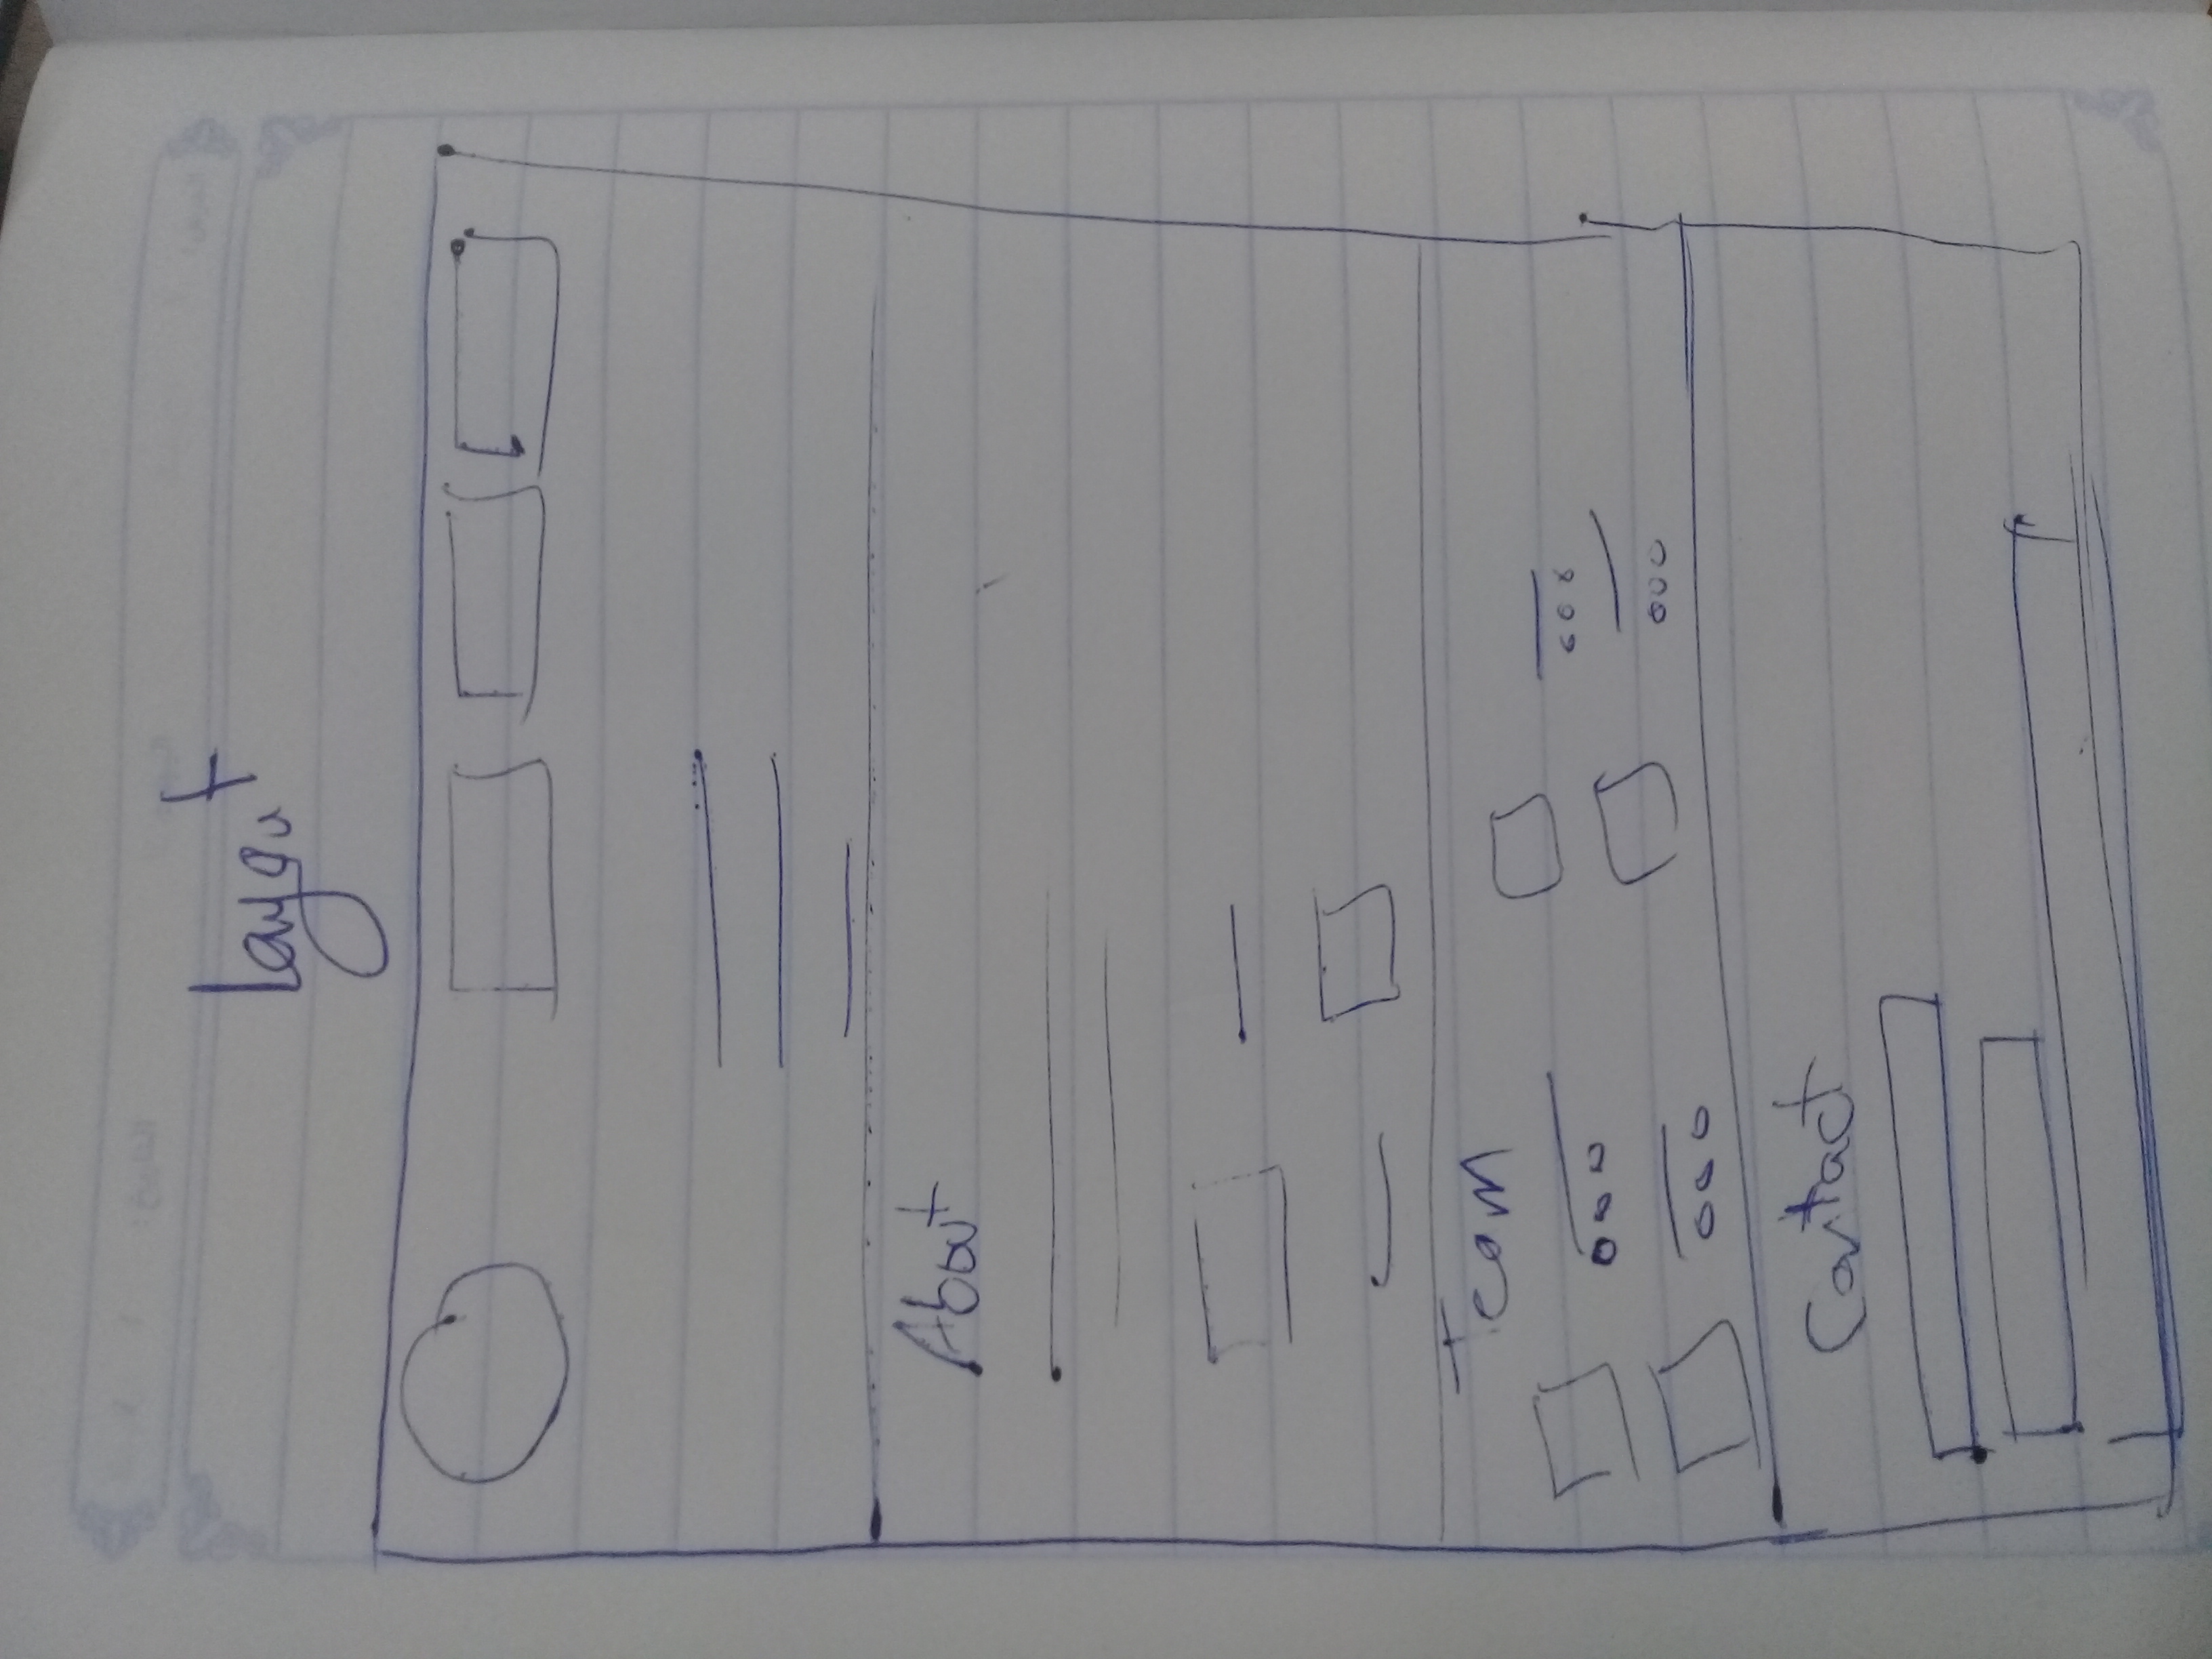 Layout
About
Team
Contact